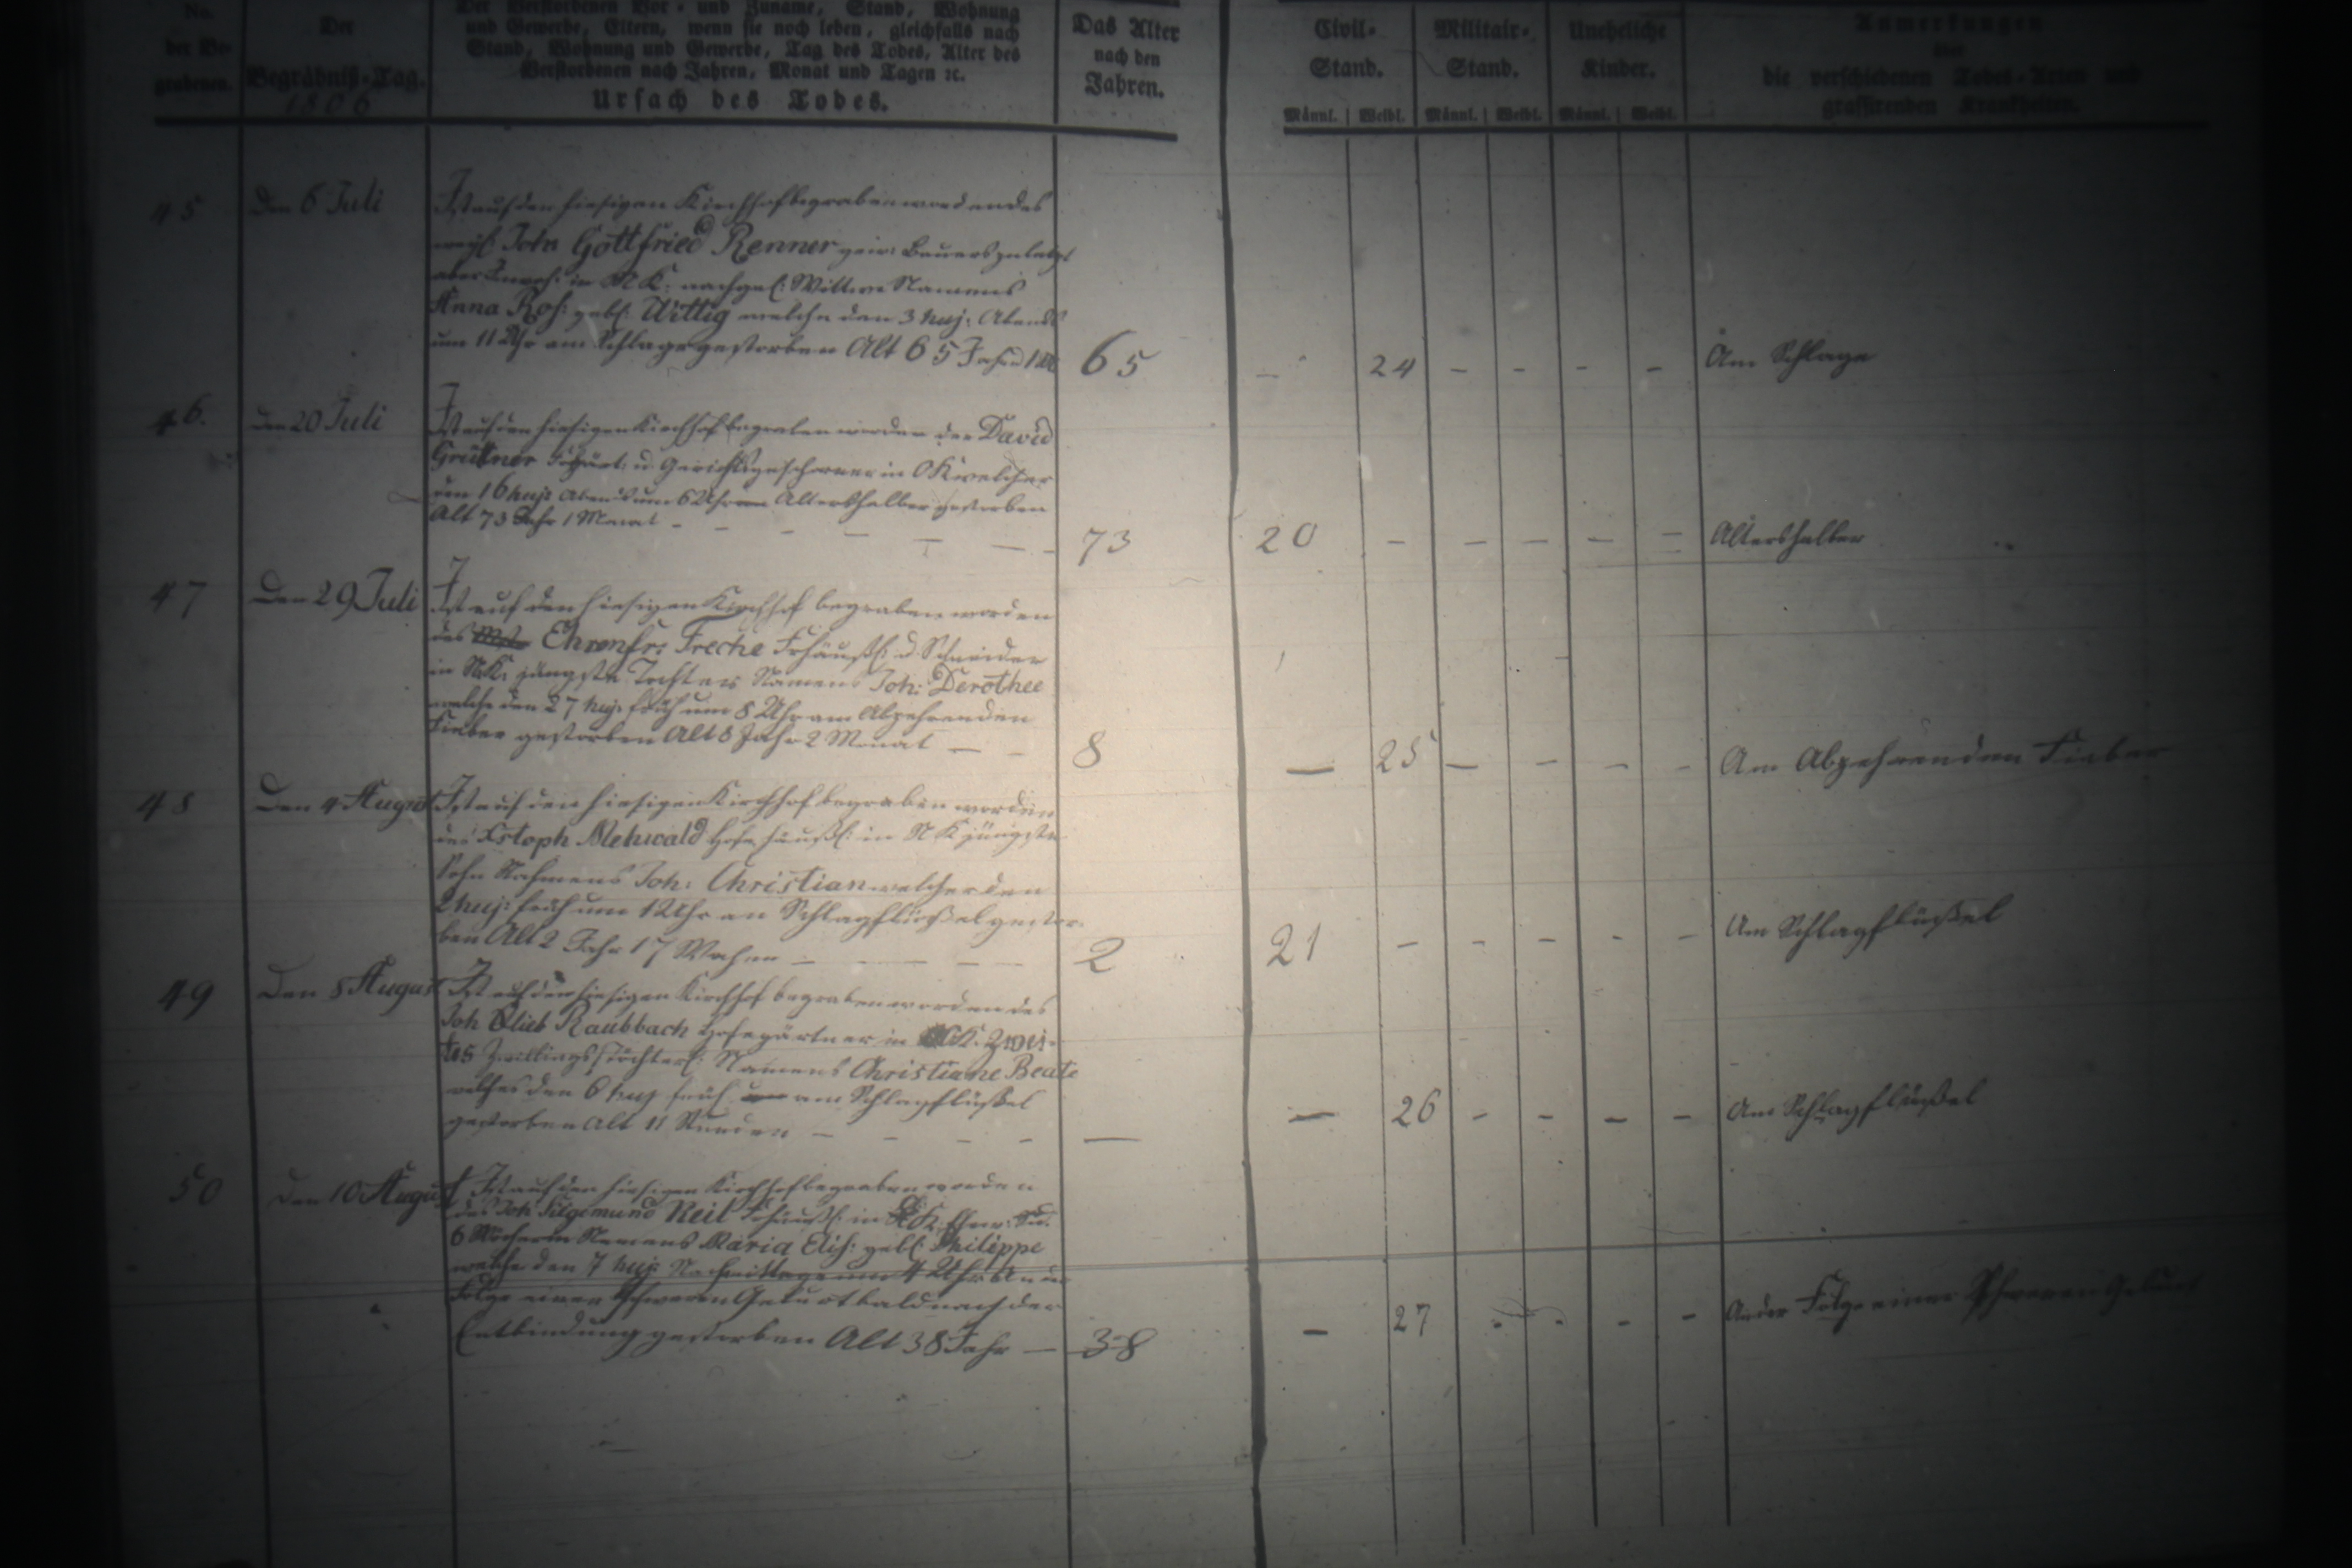 No. der Begrabenen.
Der Begräbniß-Tag.
1806
Der Verstorbenen Vor- und Zuname, Stand, Wohnung
und Gewerbe, Eltern, wenn sie noch leben, gleichfalls nach
Stand, Wohnung und Gewerbe, Tag des Todes, Alter des
Verstorbenen nach Jahren, Monat und Tagen ꝛc.
Ursach des Todes.
Das Alter
nach den
Jahren.
Civil-
Stand.
Militair-
Stand.
Uneheliche
Kinder.
Männl. Weibl. Männl. Weibl. Männl. Weibl.
Anmerkungen
über
die verschiedenen Todes-Arten und
grassirenden Krankheiten.
45 Den 6 Juli
Ist auf den hiesigen Kirchhof begraben worden des
Gottfried Renner Bauers
in N K: nachgel: Wittwe Namens
Anna Ros: geb: Wittig welche den 3 huj: Abends
um 11 Uhr am Schlage gestorben Alt 65 Jahr
65 - 24 - - - - Am Schlage
46. Den 20 Juli
Ist auf den hiesigen Kirchhof begraben worden der David
u. Gerichtsgeschworner in O K welcher
den 16 huj: Abends um 6 Uhr Altershalber gestorben
Alt 73 Jahr 1 Monat - - - - - - -
73 20 - - - - - Altershalber
47 Den 29 Juli
Ist auf den hiesigen Kirchhof begraben worden
des Ehrenfr: Freche Frhäußl: u Schneider
in N K: jüngste Tochter Namens Joh: Dorothee
welche den 27 huj: früh um 8 Uhr am Abzehrenden
Fieber gestorben Alt 8 Jahr 2 Monat - -
8 - 25 - - - - Am Abzehrenden Fieber
48 Den 4 August
Ist auf den hiesigen Kirchhof begraben worden
des Xstoph Mehwald Hofehäußl: in N K jüngster
Sohn Nahmens Joh: Christian welcher den
2 huj: früh um 12 Uhr an Schlagflüßel gestor-
ben Alt 2 Jahr 17 Wochen - - - -
2 21 - - - - - Am Schlagflüßel
49 Den 8 August
Ist auf den hiesigen Kirchhof begraben worden des
Joh Glieb Raubbach Hofegärtner in K. Zwei-
tes Zwillingstöchterl: Namens Christiane Beate
welches den 6 huj früh am Schlagflüßel
gestorben Alt 11 Stunden - - - -
- - 26 - - - - Am Schlagflüßel
50 Den 10 August
Ist auf den hiesigen Kirchhof begraben worden
des Joh Siegemund Reil Frhäußl: in K
6 Wöcherin Namens Maria Elis: geb: Philippe
welche den 7 huj: Nachmittage um 4 Uhr an der
Folge einer schweren Geburt bald nach der
Entbindung gestorben Alt 38 Jahr -
38 - 27 - - - - An der Folge einer schweren Geburt